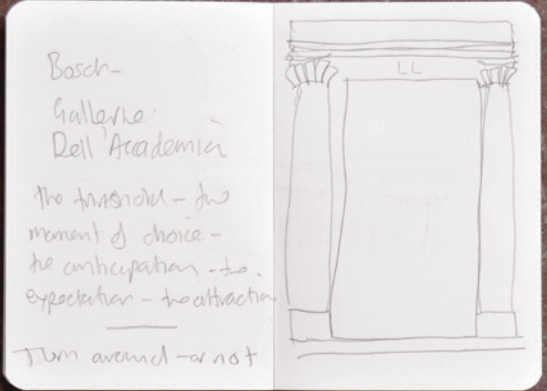 Bosch -
Gallerie
Dell'Accademia
the threshold - the
moment of choice -
the anticipation - the
expectation - the attraction
Turn around - or not
LL